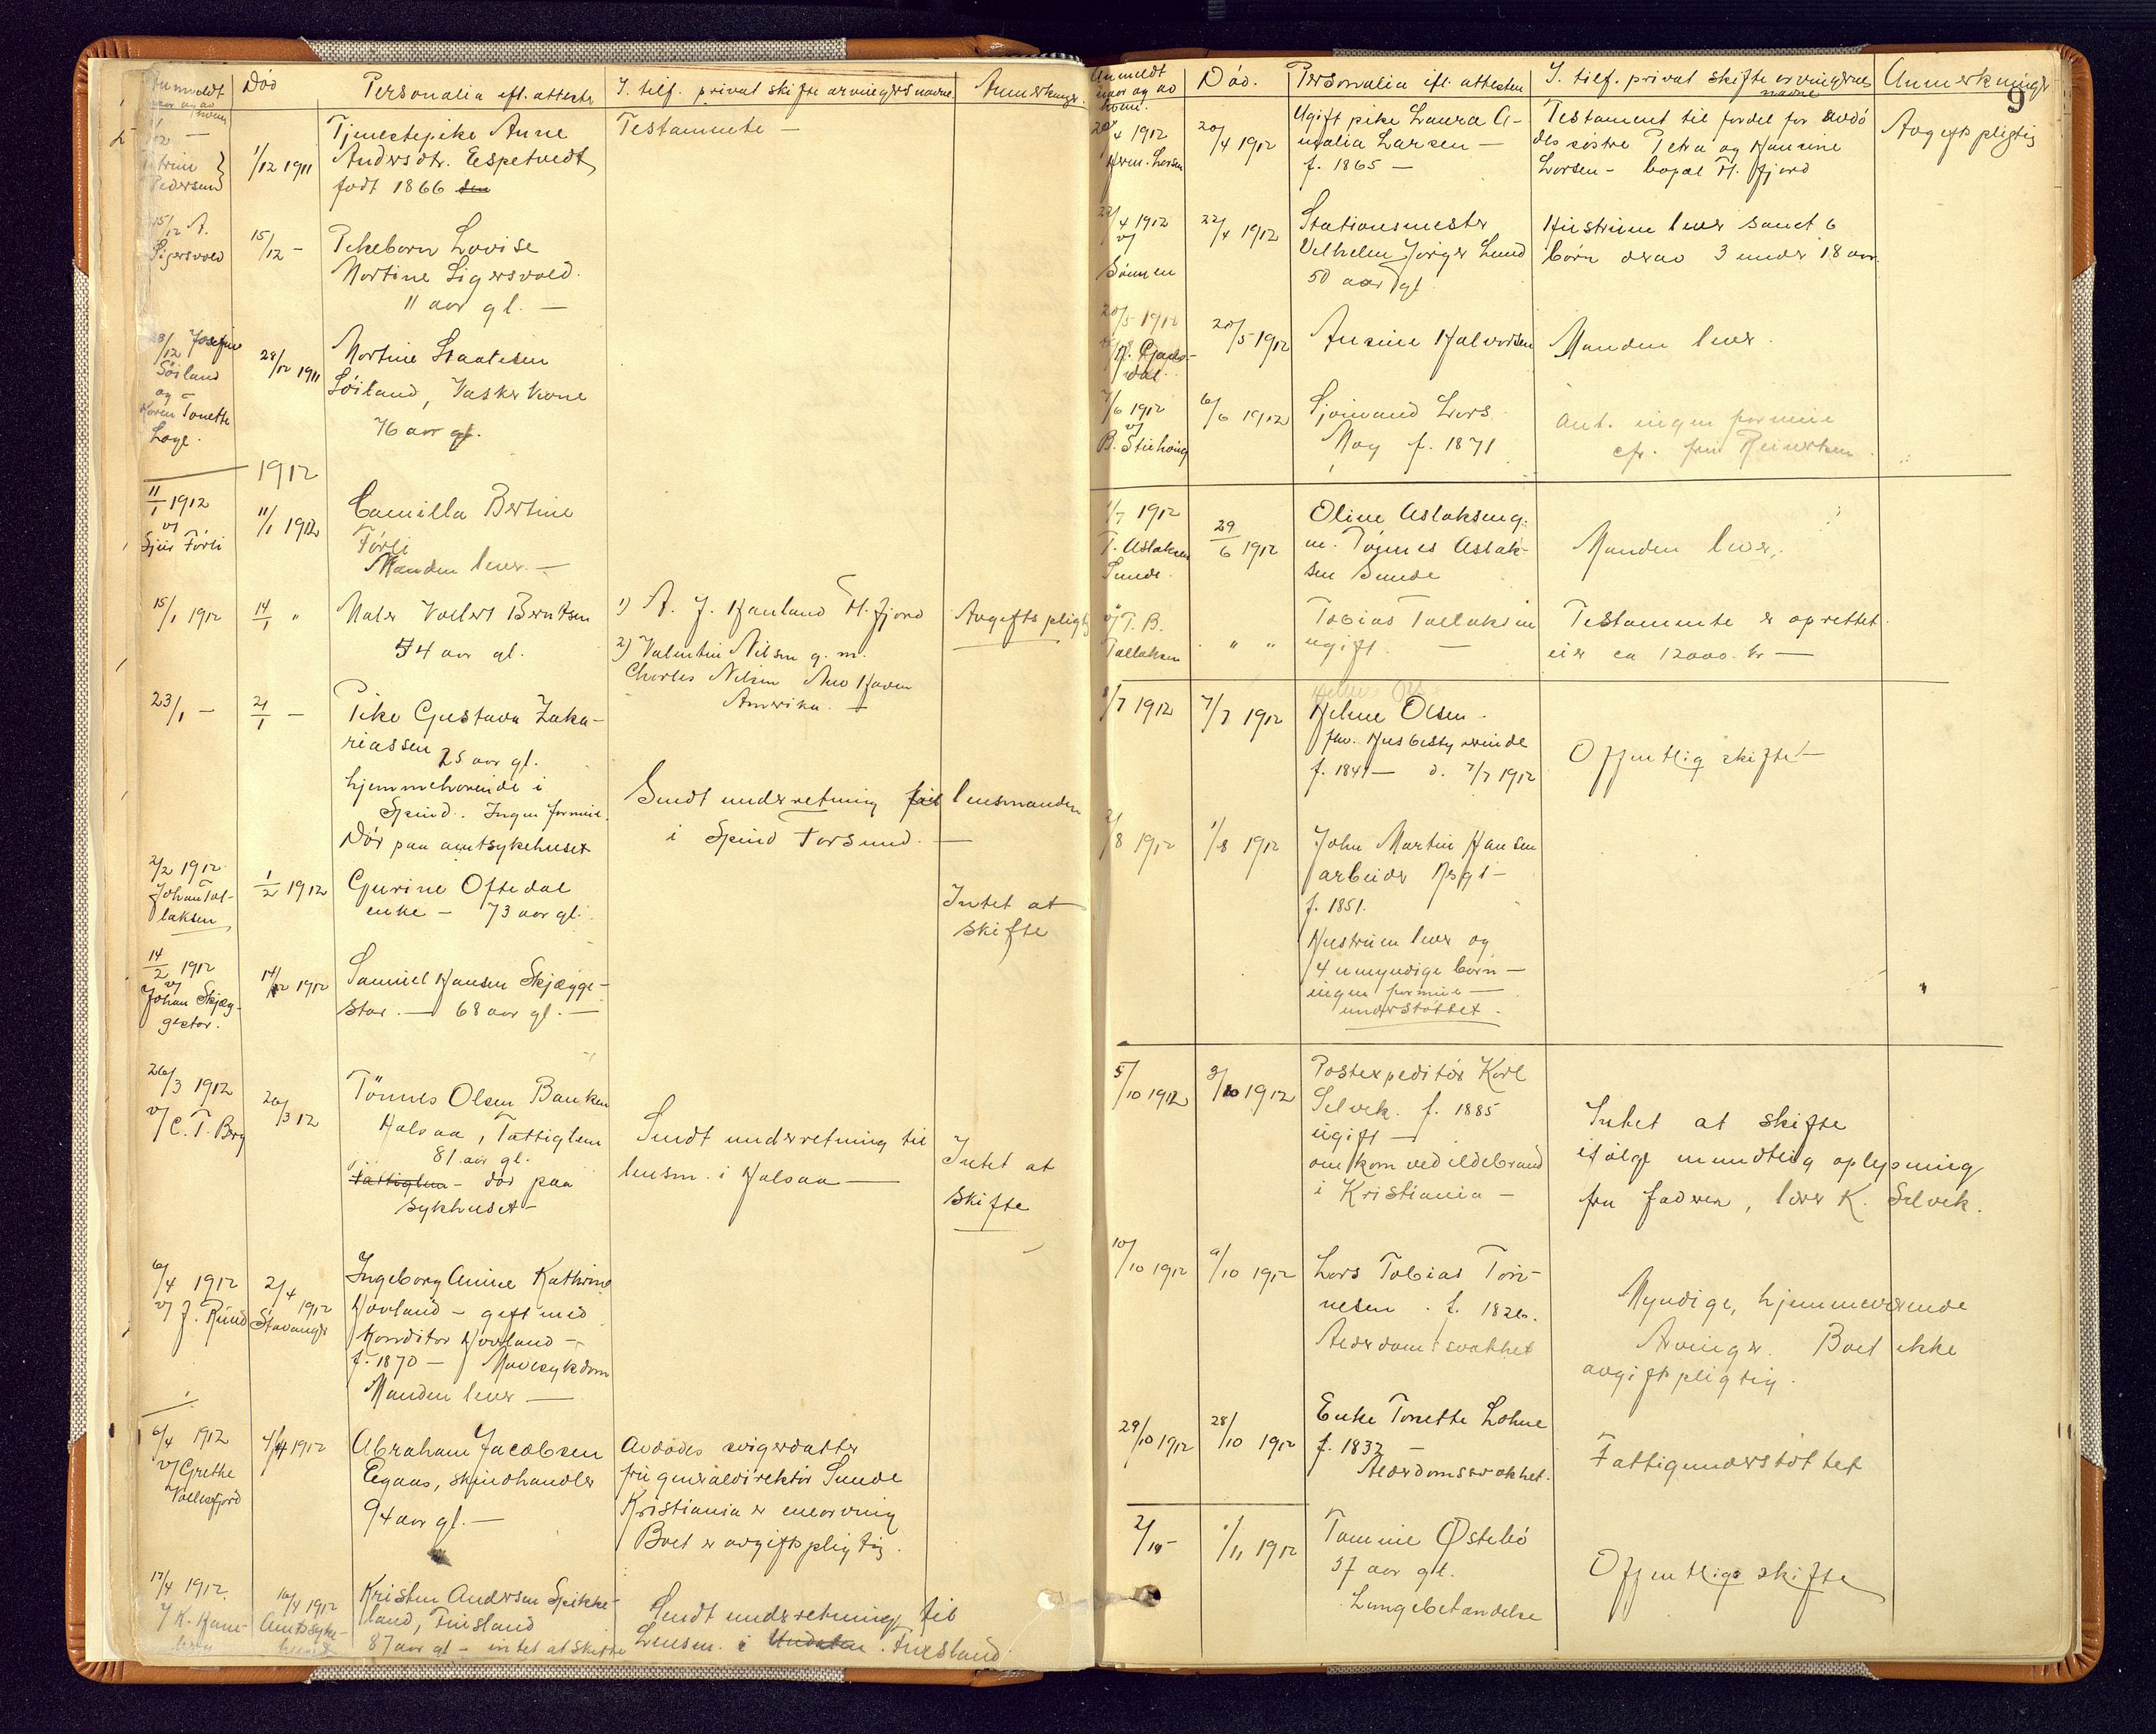 Anmeldt
naar og av
hvem
Død
Personalia efl. attester
I tilf. privat skifte arvingers navne
Anmerkninger
1/12 —
Petrine
Pedersen
1/12 1911
Tjenestepike Anne
Andersdtr. Eespetvedt
født 1866
Testamente —
15/12 A.
Sigersvold
15/12 —
Pikebarn Lovise
Martine Sigersvold.
11 aar gl. —
28/12 Josefine
Söiland
og
Karen Tonette
Loge.
28/12 1911
Martine Staalesen
Söiland, Vaskerkone
76 aar gl.
1912
11/1 1912
v/
Førli
11/1 1912
Camilla Bertine
Førli
Manden lever. —
15/1 1912
14/1 "
Maler Vallert Berntsen
54 aar gl.
1) A. J. Hanland Fl. fjord
2) Valentin Nilsen g. m.
Charles Nilsen New Haven
Amerika. —
Avgiftspligtig
23/1 —
21/1 —
Pike Gustava Zaka-
riassen 25 aar gl.
hjemmehørende i
Spind. Ingen formue.
Dør paa amtsykehuset
Sendt underretning til lensmanden
i Spind Farsund. —
2/2 1912
Johan Tal-
laksen
1/2 1912
Gurine Oftedal
enke — 73 aar gl.
Intet at
skifte
14/2 1912
v/
Johan Skjæg-
gestar.
14/2 1912
Samuel Hansen Skjægge-
star. — 68 aar gl. —
26/3 1912
v/ C. T. Berg
26/3 12
Tönnes Olsen Banken
Halsaa, Fattiglem
81 aar gl.
fattiglem — dør paa
sykhuset —
Sendt underretning til
lensm. i Halsaa —
Intet at
skifte
6/4 1912
v/ J. Rund
2/4 1912
Stavanger
Ingeborg Amine Kathrine
Hovland — gift med
Konditor Hovland —
f. 1870 — Mavesykdom
Manden lever —
6/4 1912
v/ Grethe
4/4 1912
Abraham Jacobsen
Eegaas, skindhandler
94 aar gl. —
Avdødes svigerdatter
fru generaldirektør Sunde
Kristiania er enearving
Boet er avgiftspligtig.
17/4 1912.
16/4 1912
Amtssyke-
huset
Kristen Andersen Spikke-
land, Finsland
87 aar gl — intet at skifte
Sendt underretning til
Lensm. i Undalen. Finsland
9
Anmeldt
naar og av
hvem.
Død.
Personalia efl. attesten
I. tilf. privat skifte arvingernes
navne
Anmerkninger
20/4 1912
Larsen
20/4 1912
Ugift pike Laura A-
malia Larsen —
f. 1865 —
Testament til fordel for avdø
des søstre Petra og Hansine
Larsen — bopæl Fl. fjord
Avgiftspligtig
22/4 1912
v/
Sønnen
22/4 1912
Stationsmester
Vilhelm Jørger Lund
50 aar gl
Hustruen lever samt 6
børn derav 3 under 18 aar.
20/5 1912
20/5 1912
Ansine Halvorsen
Manden lever.
7/6 1912
v/
B. Stuhaug
6/6 1912
Sjømand Lars
Moy f. 1871
Ant. ingen formue
cfr. fru Reinertsen
1/7 1912
T. Aslaksen
Sunde.
29/6 1912
Oline Aslaksen g.
m. Tönnes Aslak-
sen Sunde
Manden lever,
v/ T. B.
Tallaksen
" "
Tobias Tallaksen
ugift. —
Testamente er oprettet.
eier ca 12000. kr —
8/7 1912
7/7 1912
Helene Olsen —
fhv. Husbestyrerinde
f. 1841 — d. 7/7 1912
Offentlig skifte —
2/8 1912
1/8 1912
John Martin Hansen
arbeider
f. 1851.
Hustruen lever og
4 umyndige børn —
ingen formue —
understøttet.
5/10 1912
3/10 1912
Postexpeditør Karl
Selvek. f. 1885
ugift —
omkom ved ildebrand
i Kristiania —
Intet at skifte
ifølge mundtlig oplysning
fra faderen, lærer K. Selvek.
10/10 1912
9/10 1912
Lars Tobias Tön-
nesen. f. 1826.
Alderdomssvakhet
Myndige, hjemmeværende
Arvinger. Boet ikke
avgiftspligtig.
29/10 1912
28/10 1912
Enke Tonette Lohne
f. 1832 —
Alderdomssvakhet.
Fattigunderstøttet
2/11 —
1/11 1912
Tommie Østebø
37 aar gl.
Lungebetændelse
Offentlig skifte